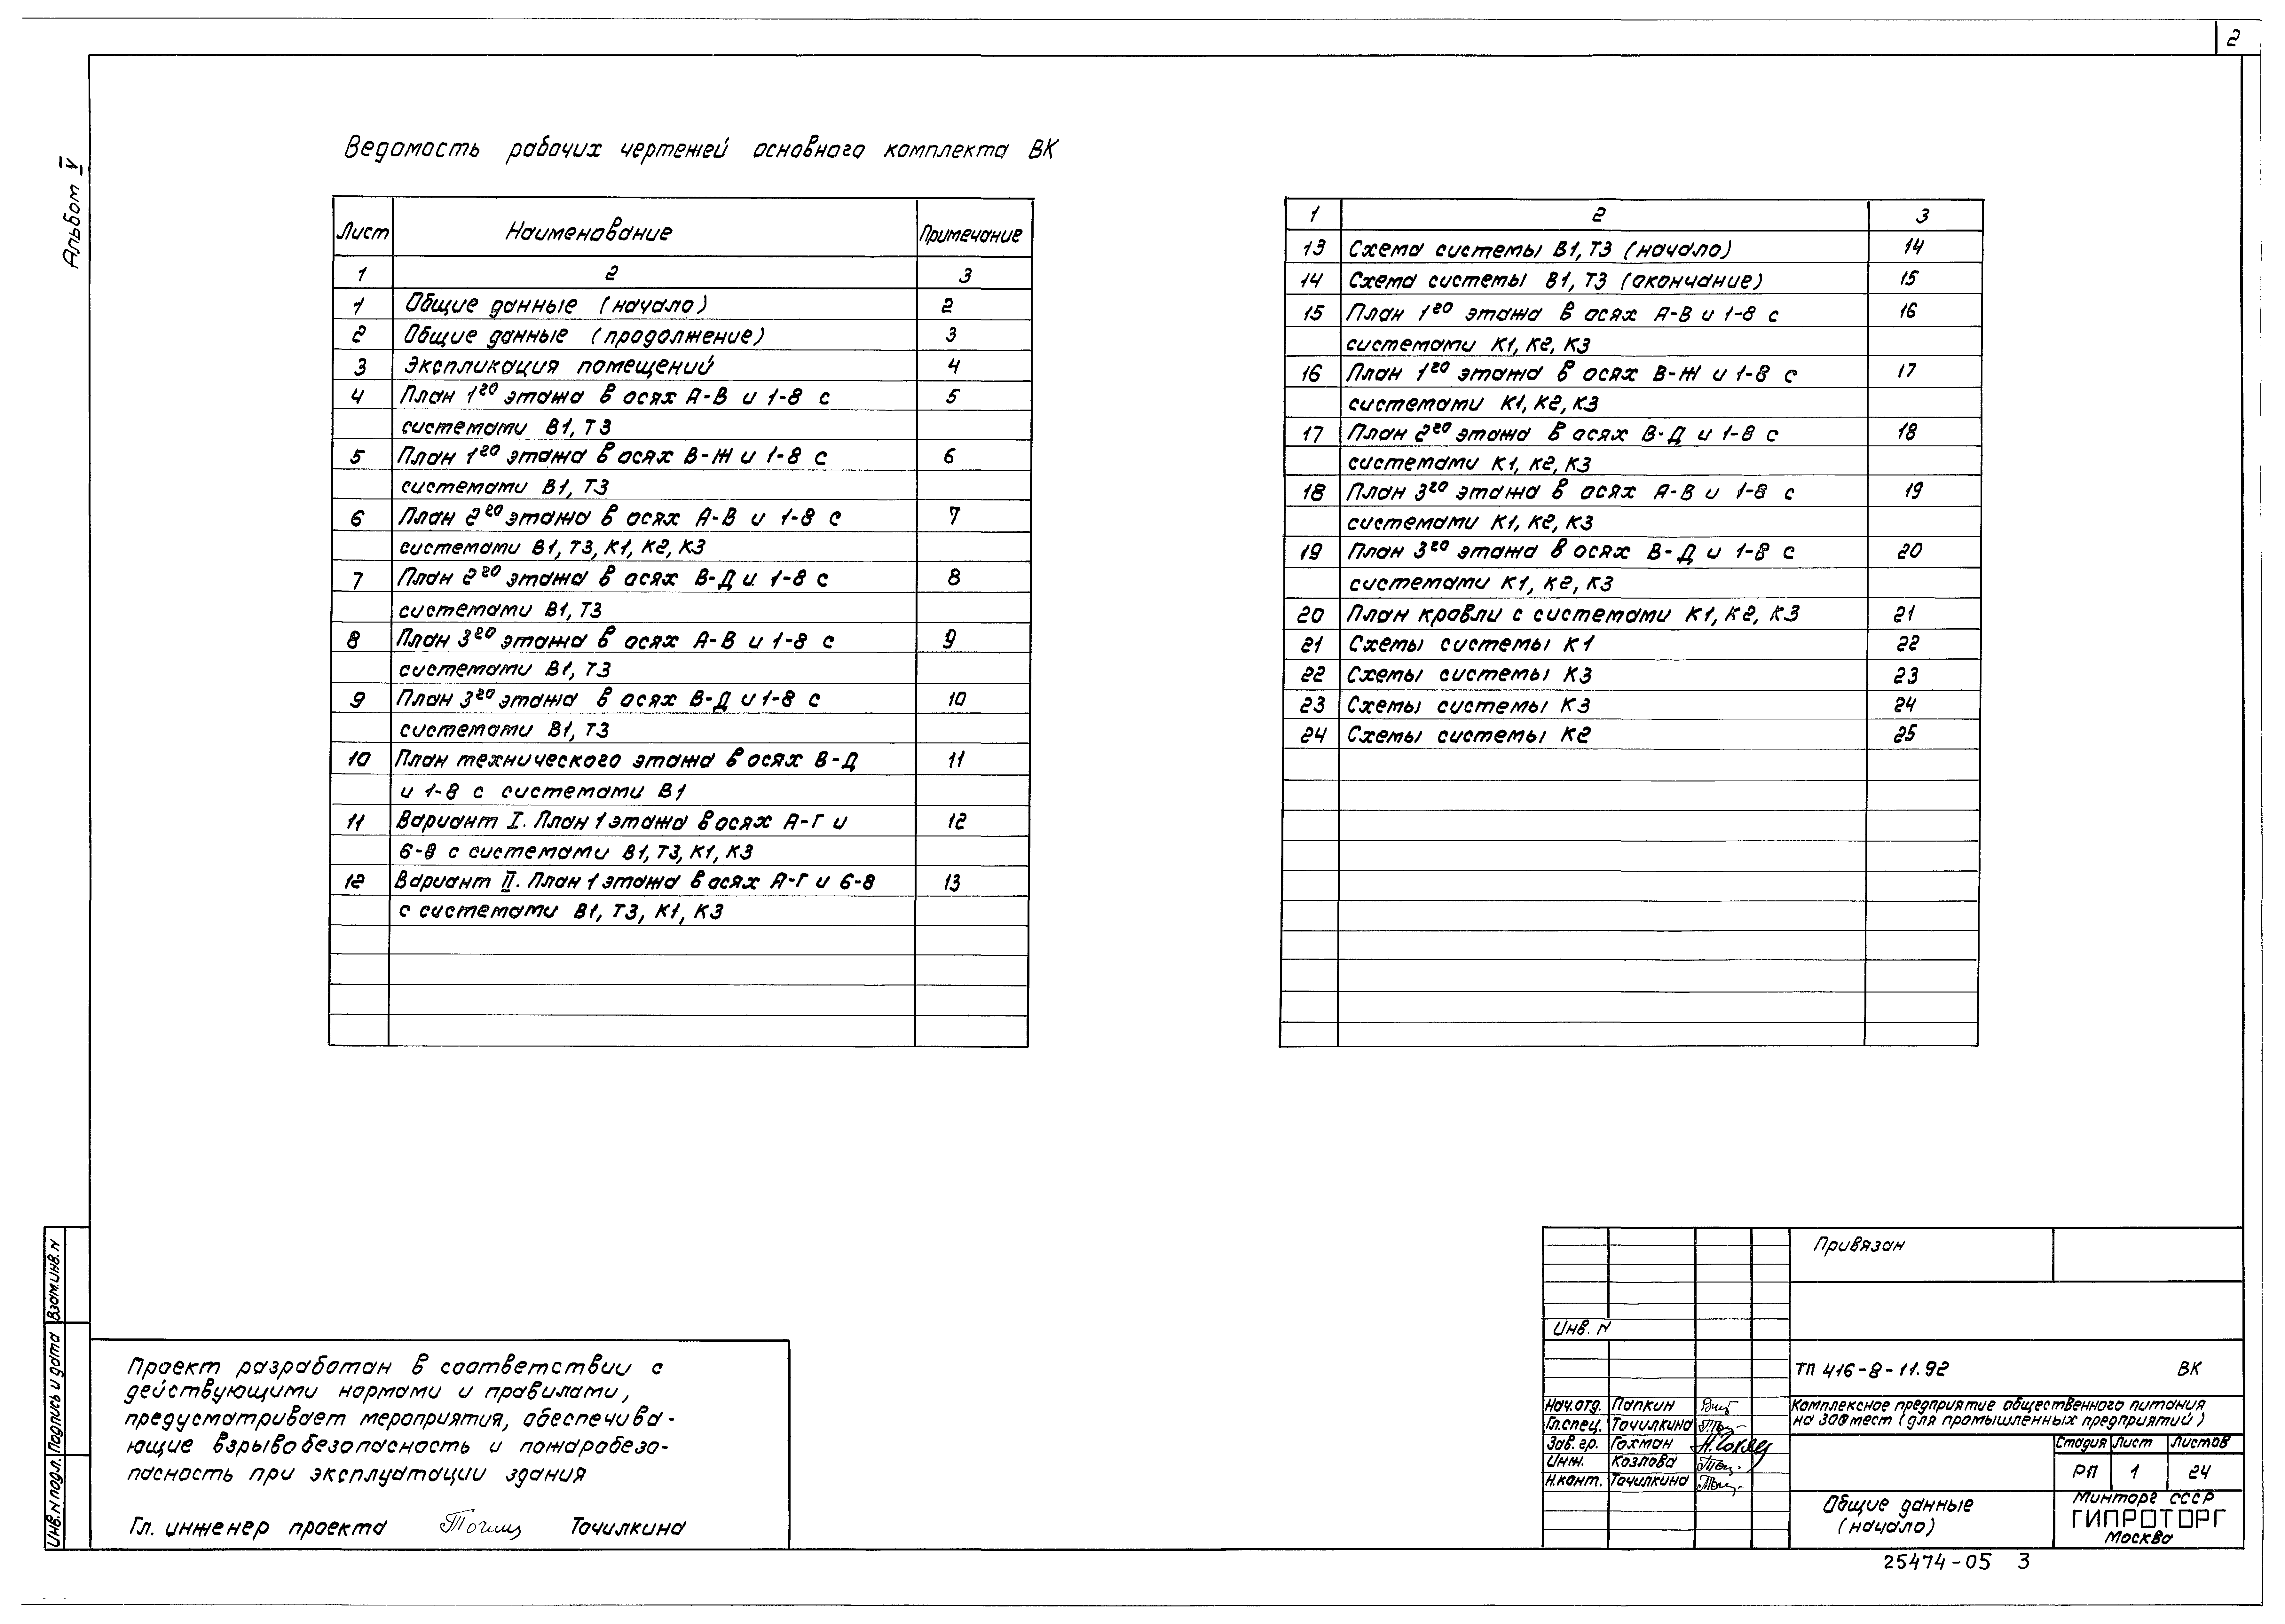 2
Альбом V
Ведомость рабочих чертежей основного комплекта ВК
Лист Наименование Примечание
1 2 3
1 Общие данные (начало) 2
2 Общие данные (продолжение) 3
3 Экспликация помещений 4
4 План 1го этажа в осях А-В и 1-8 с 5
системами В1, Т3
5 План 1го этажа в осях В-Ж и 1-8 с 6
системами В1, Т3
6 План 2го этажа в осях А-В и 1-8 с 7
системами В1, Т3, К1, К2, К3
7 План 2го этажа в осях В-Д и 1-8 с 8
системами В1, Т3
8 План 3го этажа в осях А-В и 1-8 с 9
системами В1, Т3
9 План 3го этажа в осях В-Д и 1-8 с 10
системами В1, Т3
10 План технического этажа в осях В-Д 11
и 1-8 с системами В1
11 Вариант I. План 1 этажа в осях А-Г и 12
6-8 с системами В1, Т3, К1, К3
12 Вариант II. План 1 этажа в осях А-Г и 6-8 13
с системами В1, Т3, К1, К3
1 2 3
13 Схема системы В1, Т3 (начало) 14
14 Схема системы В1, Т3 (окончание) 15
15 План 1го этажа в осях А-В и 1-8 с 16
системами К1, К2, К3
16 План 1го этажа в осях В-Ж и 1-8 с 17
системами К1, К2, К3
17 План 2го этажа в осях В-Д и 1-8 с 18
системами К1, К2, К3
18 План 3го этажа в осях А-В и 1-8 с 19
системами К1, К2, К3
19 План 3го этажа в осях В-Д и 1-8 с 20
системами К1, К2, К3
20 План кровли с системами К1, К2, К3 21
21 Схемы системы К1 22
22 Схемы системы К3 23
23 Схемы системы К3 24
24 Схемы системы К2 25
Инв. N подл. Подпись и дата Взам. инв. N
Проект разработан в соответствии с
действующими нормами и правилами,
предусматривает мероприятия, обеспечива-
ющие взрывобезопасность и пожаробезо-
пасность при эксплуатации здания
Гл. инженер проекта Точилкина
Привязан
Инв. N
ТП 416-8-11.92 ВК
Нач. отд. Папкин
Гл. спец. Точилкина
Зав. гр. Гохман
Инж. Козлова
Н. конт. Точилкина
Комплексное предприятие общественного питания
на 300 мест (для промышленных предприятий)
Стадия Лист Листов
РП 1 24
Общие данные
(начало)
Минторг СССР
ГИПРОТОРГ
Москва
25474-05 3